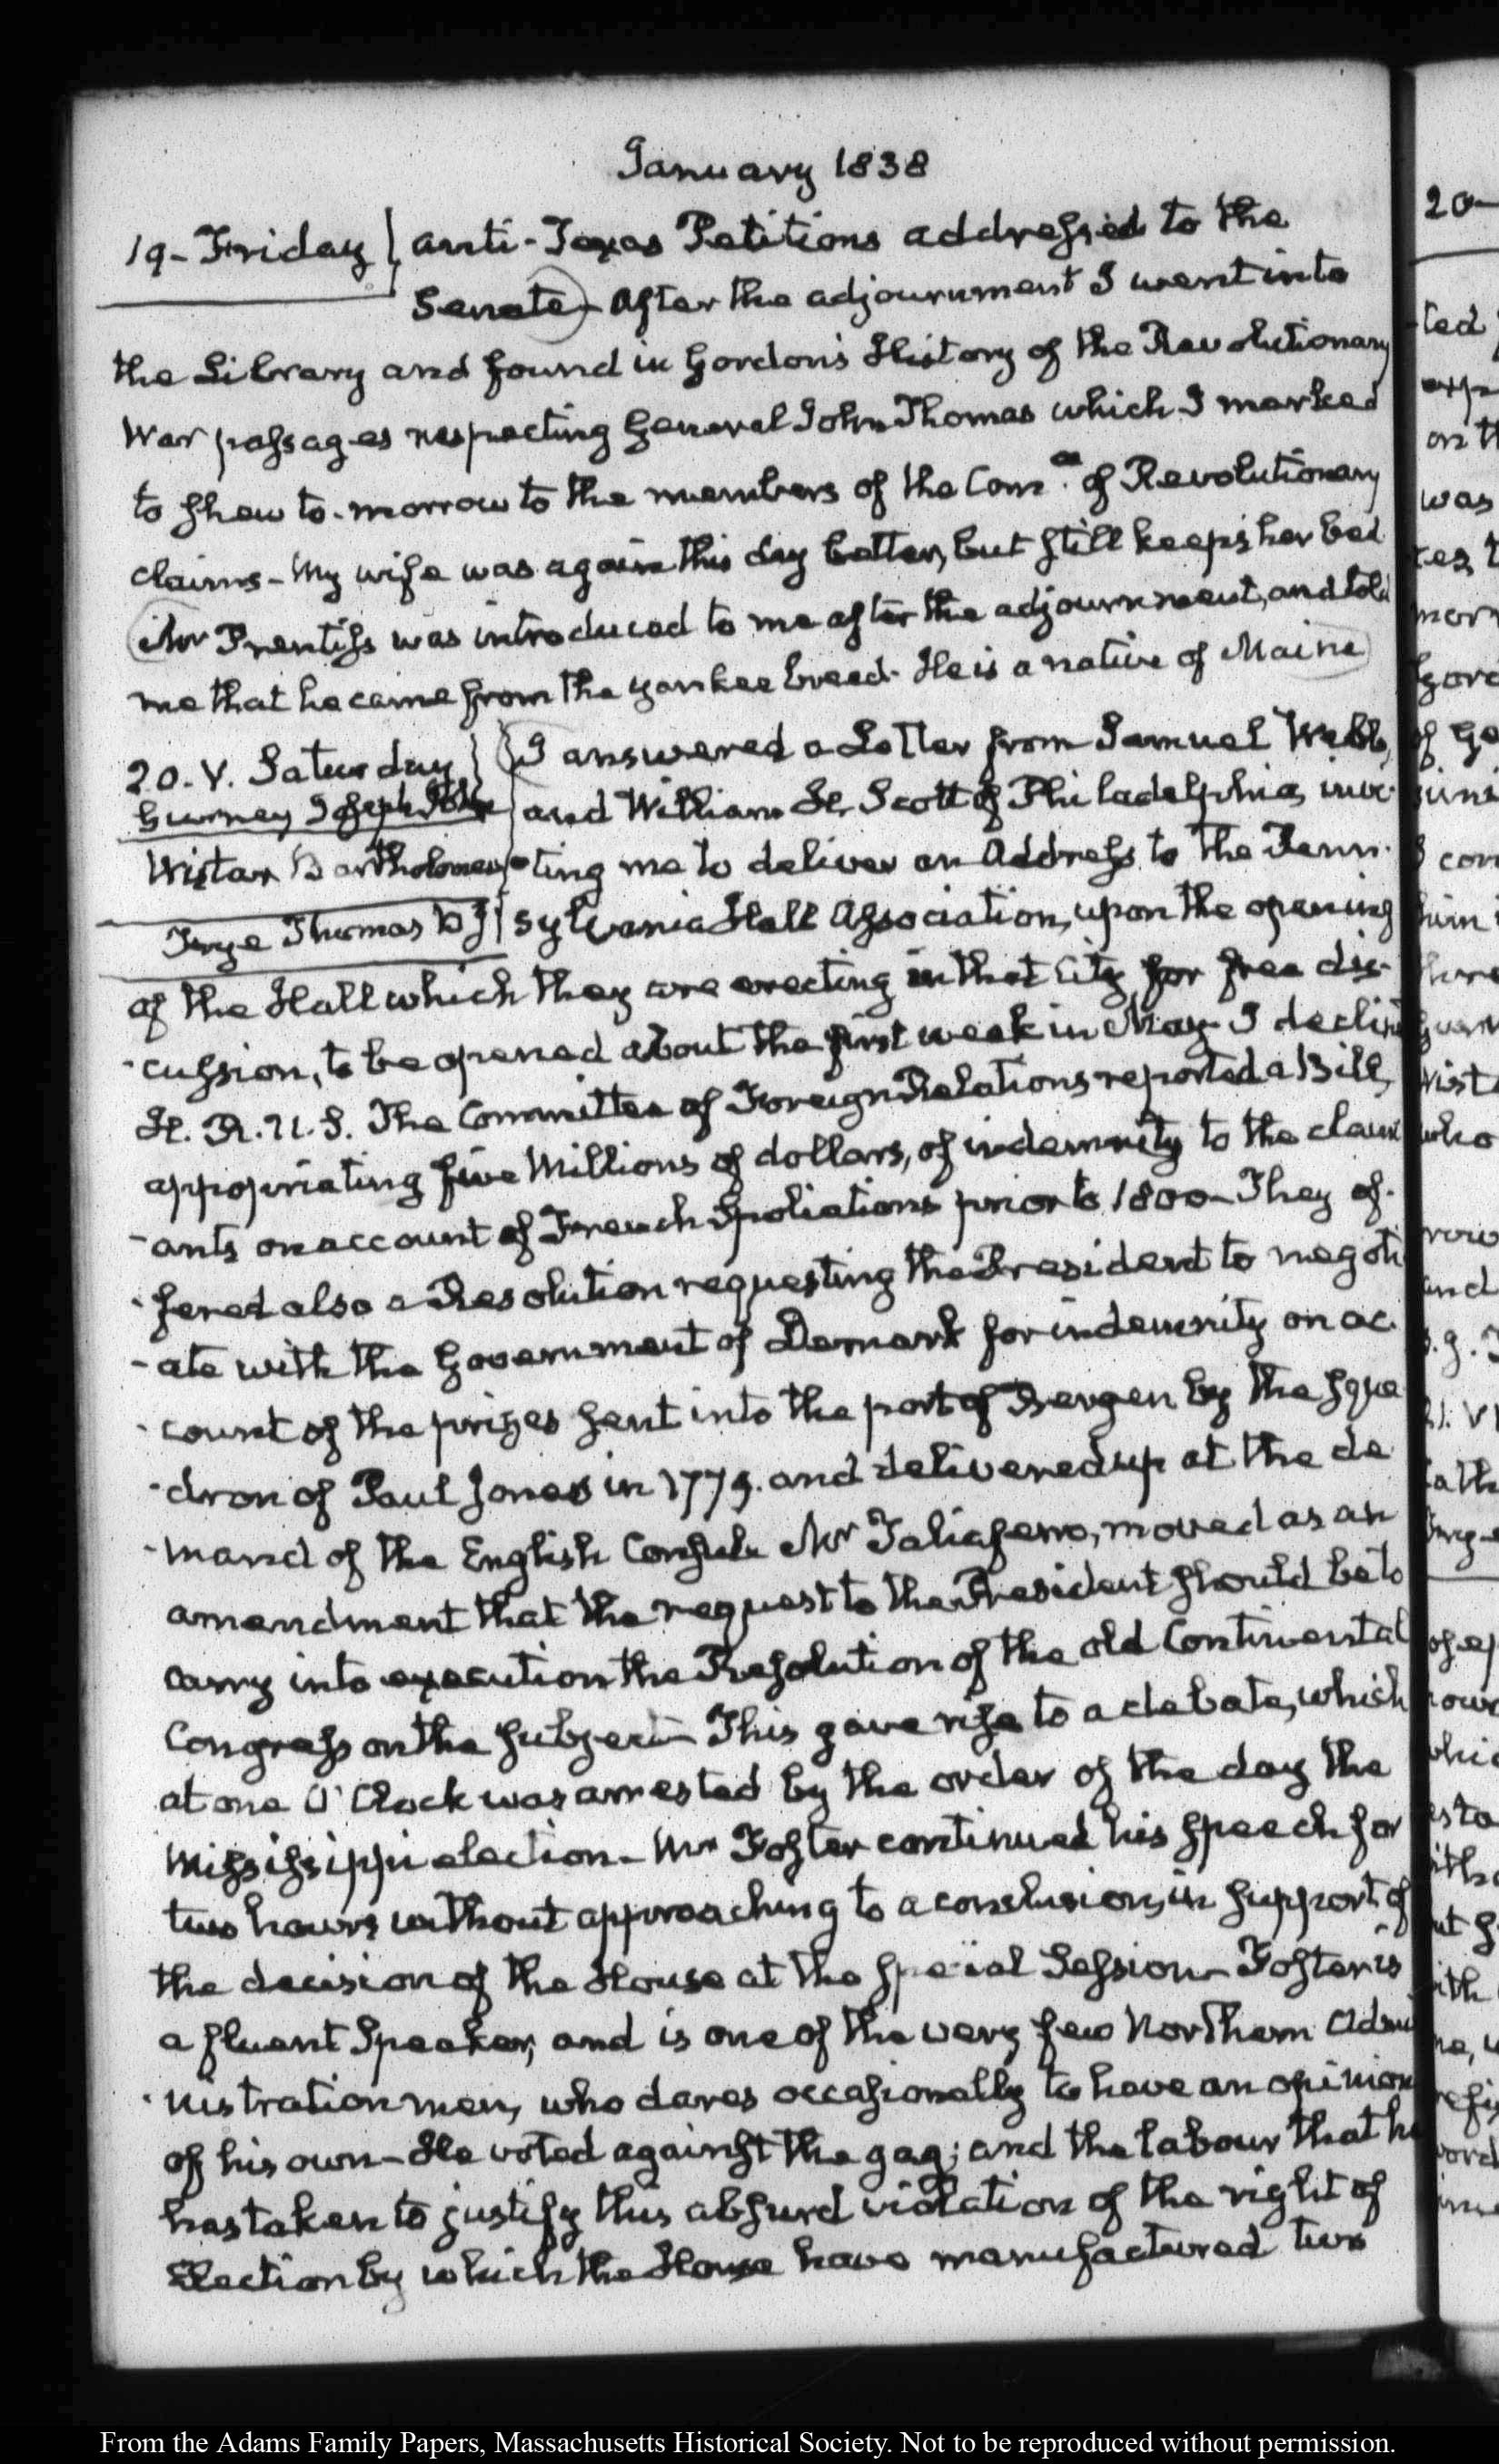 January 1838
19- Friday
anti-Texas Petitions addressed to the
Senate) After the adjournment I went into
the Library and found in Gordon's History of the Revolutionary
War passages respecting General John Thomas which I marked
to shew to-morrow to the members of the Com.ee of Revolutionary
claims- My wife was again this day better, but still keeps her bed
(Mr Prentiss was introduced to me after the adjournment, and told
me that he came from the yankee breed. He is a native of Maine)
20. V. Saturday
Gurney Joseph John
Wistar Bartholomew
Thomas B
(I answered a Letter from Samuel Webb,
and William H. Scott of Philadelphia, invi-
-ting me to deliver an Address to the Penn-
sylvania Hall Association, upon the opening
of the Hall which they are erecting in that City for free dis-
-cussion, to be opened about the first week in May- I declin
H. R. U. S. The Committee of Foreign Relations reported a Bill,
appopriating five Millions of dollars, of indemnity to the claim
-ants on account of French Spoliations prior to 1800- They of-
-fered also a Resolution requesting the President to negoti
-ate with the Government of Demark for indemnity on ac-
-count of the prizes sent into the port of Bergen by the squa
-dron of Paul Jones in 1779. and delivered up at the de
-mand of the English Consul. Mr Taliaferro, moved as an
amendment that the request to the President should be to
carry into execution the Resolution of the old Continental
Congress on the subject- This gave rise to a debate, which
at one O'Clock was arrested by the order of the day the
Mississippi election- Mr Foster continued his speech for
two hours without approaching to a conclusion, in support of
the decision of the House at the special Session- Foster is
a fluent Speaker, and is one of the very few Northern Admi
-nistration men, who dares occasionally to have an opinion
of his own- He voted against the gag; and the labour that he
has taken to justify this absurd violation of the right of
Election by which the House have manufactured two
20-
ted
on th
was
of Ge
who
and
From the Adams Family Papers, Massachusetts Historical Society. Not to be reproduced without permission.